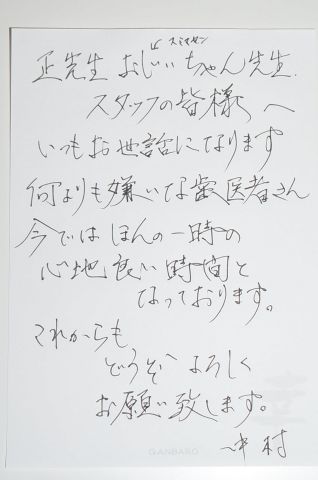 スミマセン
正先生 おじいちゃん先生.
スタッフの皆様へ
いつもお世話になります
何よりも嫌いな歯医者さん
今では ほんの一時の
心地良い時間と
なっております。
これからも
どうぞ よろしく
お願い致します。
中村
GANBARO